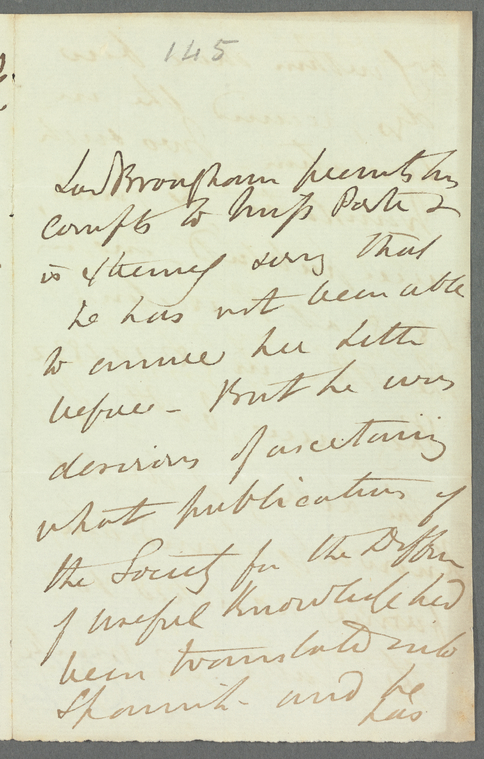 145
Lord Brougham presents his
compts to Miss Porter &
is extremely sorry that
he has not been able
to answer her Letter
before - But he was
desirous of ascertaining
what publications of
the Society for the Diffn
of useful Knowledge had
been translated into
Spanish - and he
has